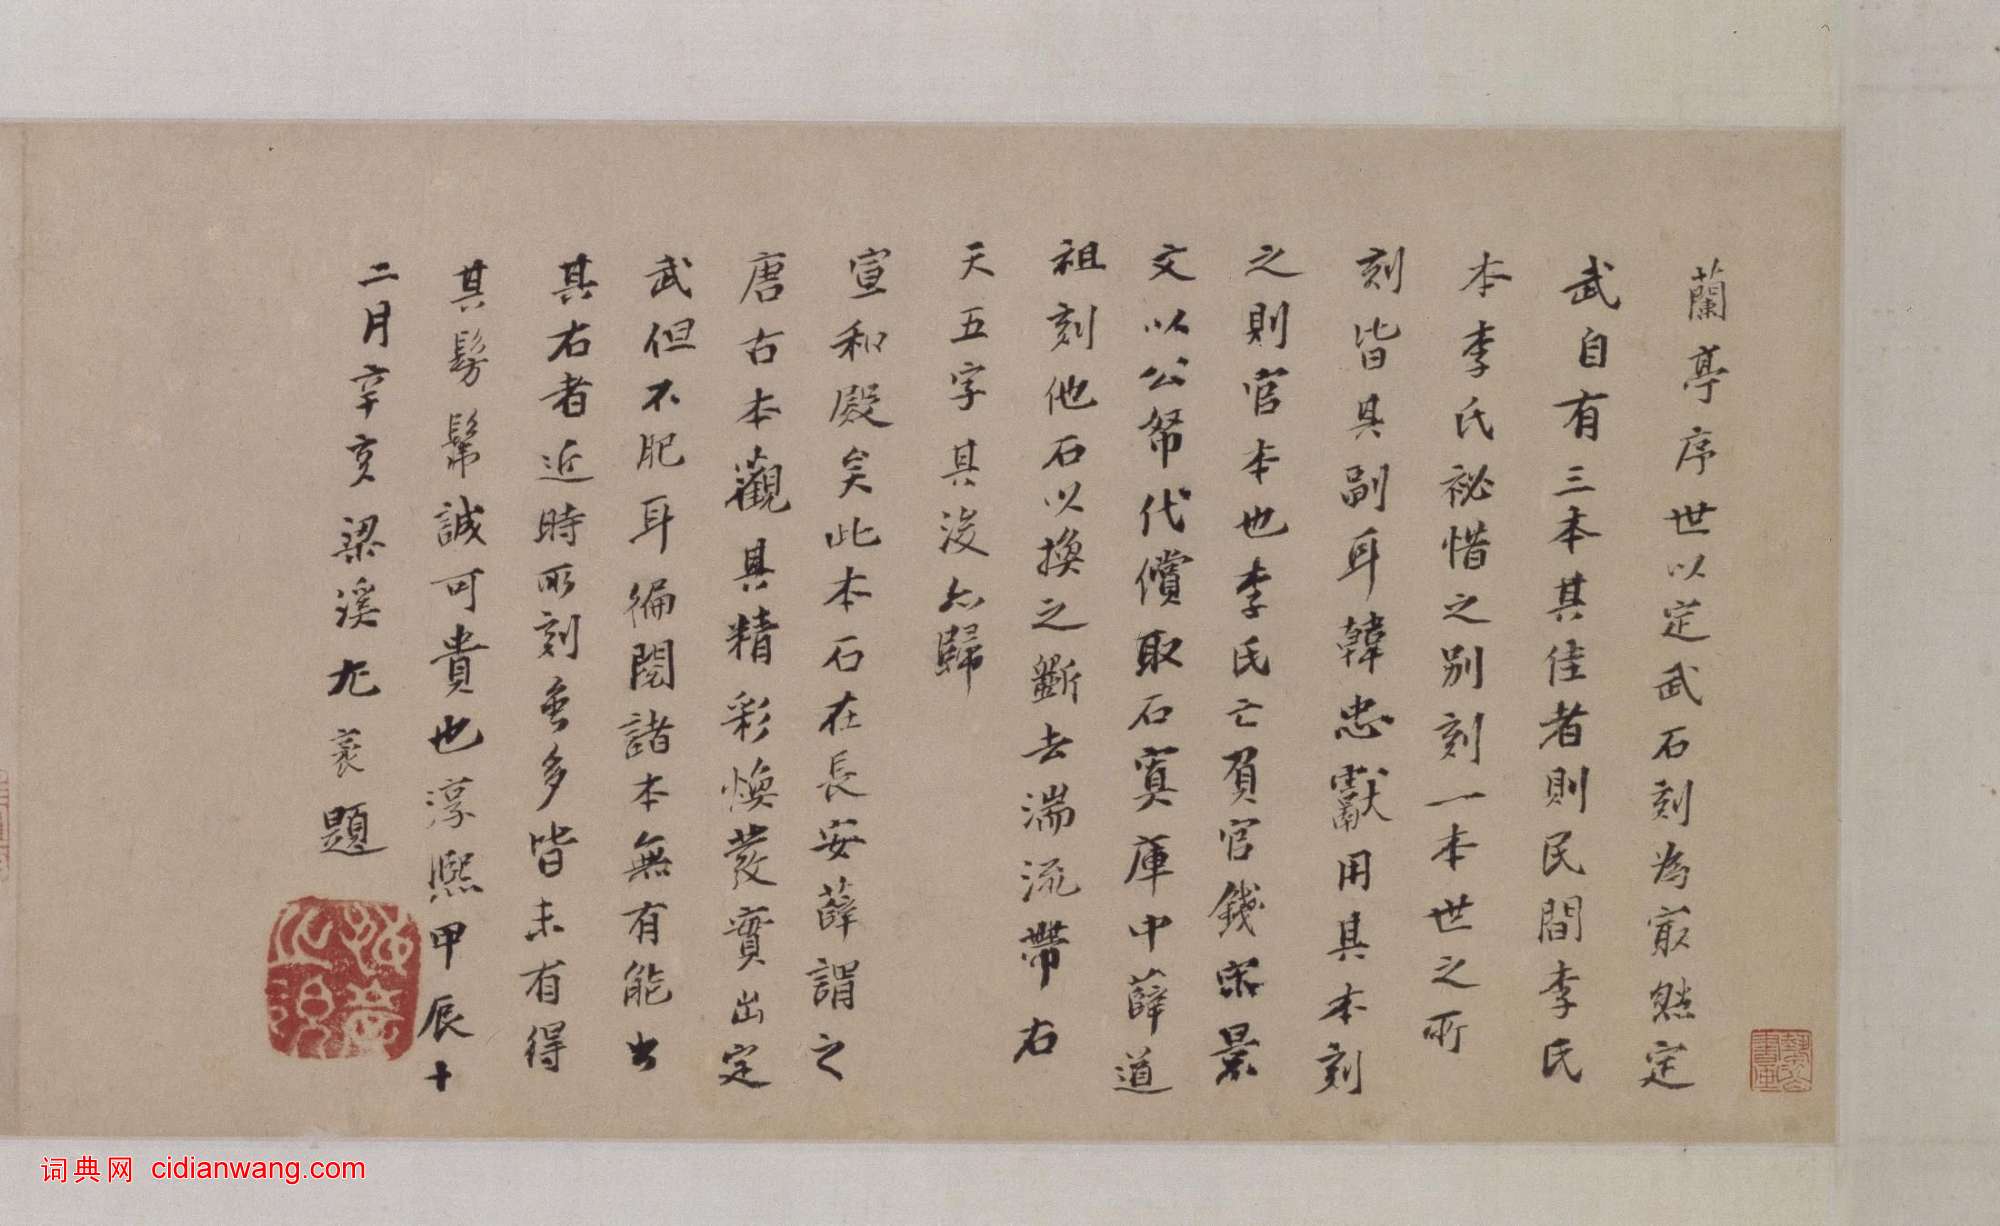 蘭亭序世以定武石刻為㝡然定
武自有三本其佳者則民間李氏
本李氏祕惜之别刻一本世之所
刻皆具副耳韓忠獻用其本刻
之則官本也李氏亡負官錢宋景
文以公帑代償取石寘庫中薛道
祖刻他石以換之斷去湍流帶右
天五字其後亦歸
宣和殿矣此本石在長安薛謂之
唐古本觀其精彩煥發實出定
武但不肥耳徧閱諸本無有能出
其右者近時所刻至多皆未有得
其髣髴誠可貴也淳熙甲辰十
二月辛亥梁溪尤袤題
词典网 cidianwang.com